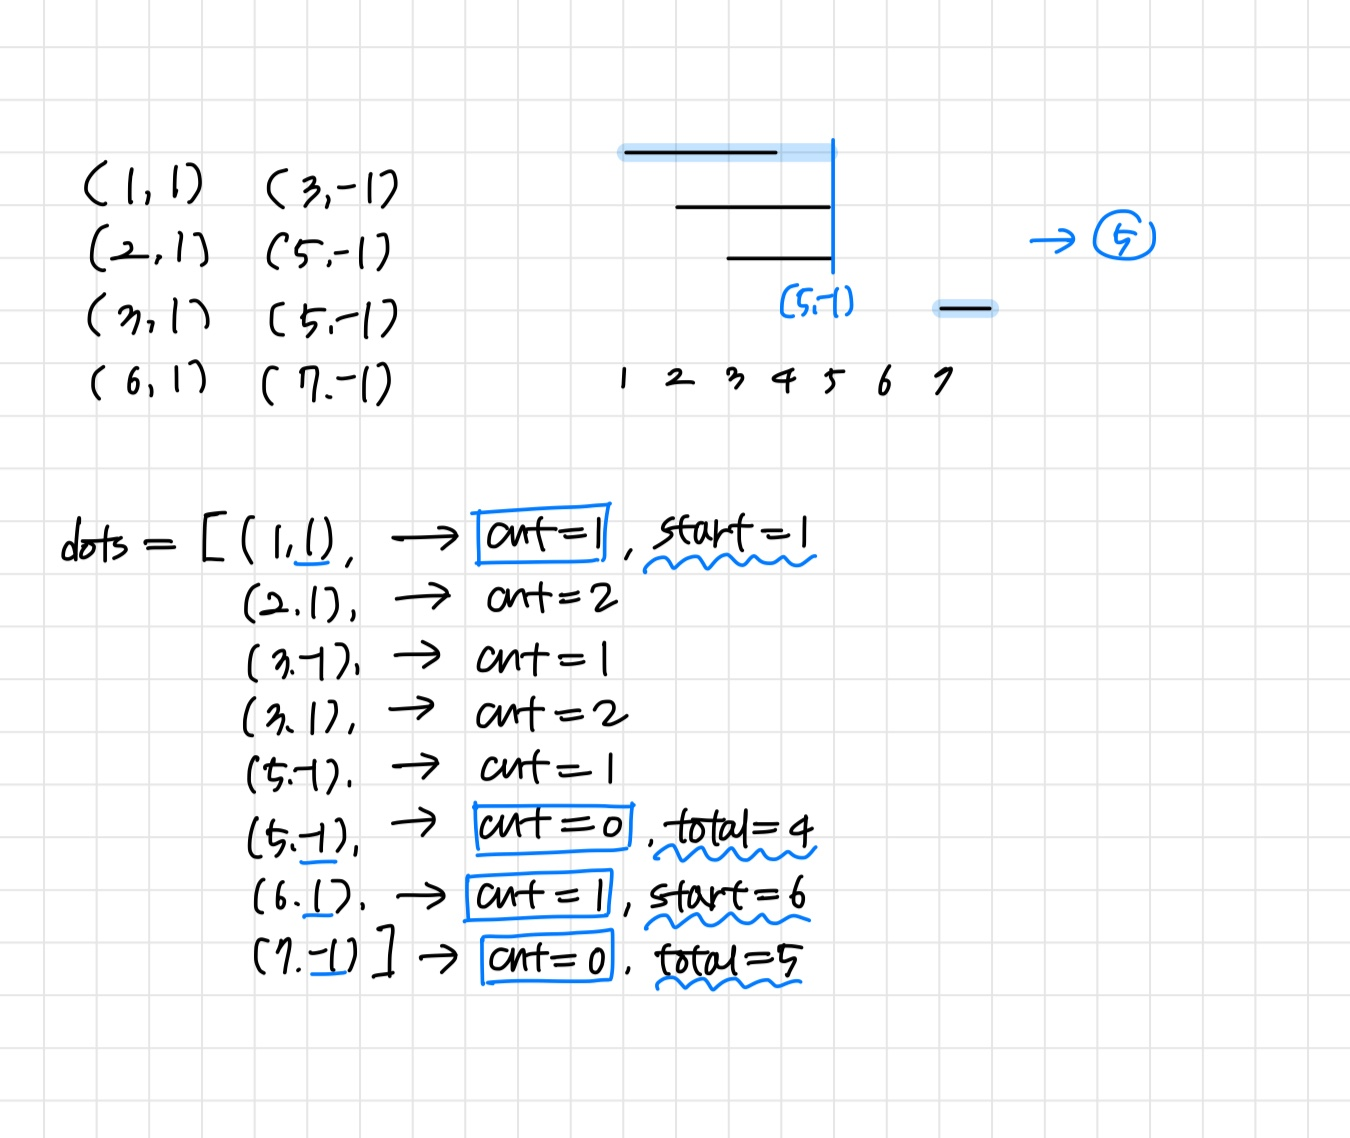 (1,1) (3,-1)
(2,1) (5,-1)
(3,1) (5,-1)
(6,1) (7,-1)
→ 5
(5,-1)
1 2 3 4 5 6 7
dots = [(1,1), → cnt=1, start=1
(2,1), → cnt=2
(3,-1), → cnt=1
(3,1), → cnt=2
(5,-1), → cnt=1
(5,-1), → cnt=0, total=4
(6,1), → cnt=1, start=6
(7,-1)] → cnt=0, total=5